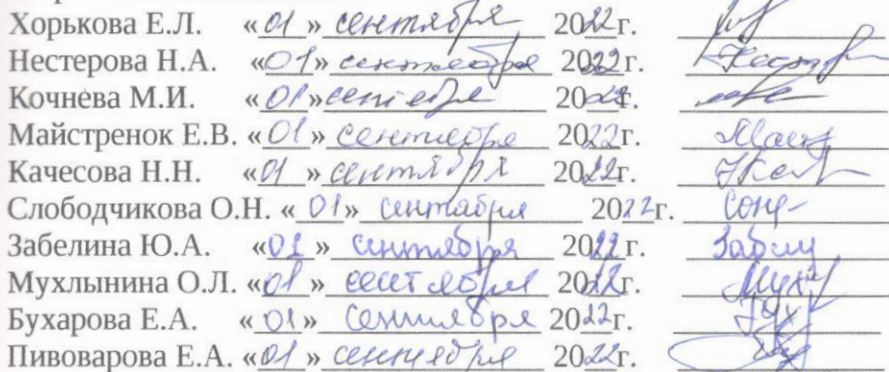 Хорькова Е.Л. «01» сентября 2022г.
Нестерова Н.А. «01» сентября 2022г.
Кочнева М.И. «01» сентября 2022г.
Майстренок Е.В. «01» сентября 2022г.
Качесова Н.Н. «01» сентября 2022г.
Слободчикова О.Н. «01» сентября 2022г.
Забелина Ю.А. «01» сентября 2022г.
Мухлынина О.Л. «01» сентября 2022г.
Бухарова Е.А. «01» сентября 2022г.
Пивоварова Е.А. «01» сентября 2022г.